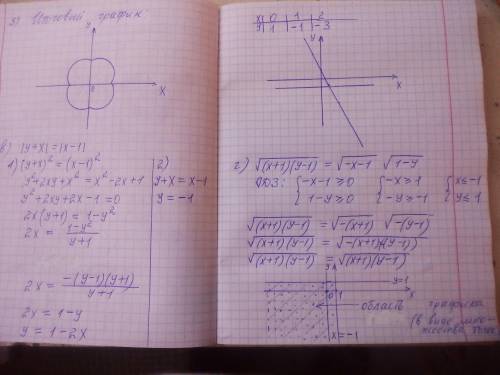 3) Итоговый график
y
0
x
в) |y+x| = |x-1|
1) (y+x)² = (x-1)²
y²+2xy+x² = x²-2x+1
y²+2xy+2x-1=0
2x(y+1) = 1-y²
2x = (1-y²)/(y+1)
2x = (-(y-1)(y+1))/(y+1)
2x = 1-y
y = 1-2x
2)
y+x = x-1
y = -1
x 0 1 2
y 1 -1 -3
y
x
г) √((x+1)(y-1)) = √(-x-1) √(1-y)
ОДЗ: { -x-1⩾0 { -x⩾1 { x⩽-1
1-y⩾0 -y⩾-1 y⩽1
√((x+1)(y-1)) = √(-(x+1)) √(-(y-1))
√((x+1)(y-1)) = √(-(x+1)(-(y-1)))
√((x+1)(y-1)) = √((x+1)(y-1))
y
y=1
0 1
x
область графика
(в виде мно-
жества точек
x=-1